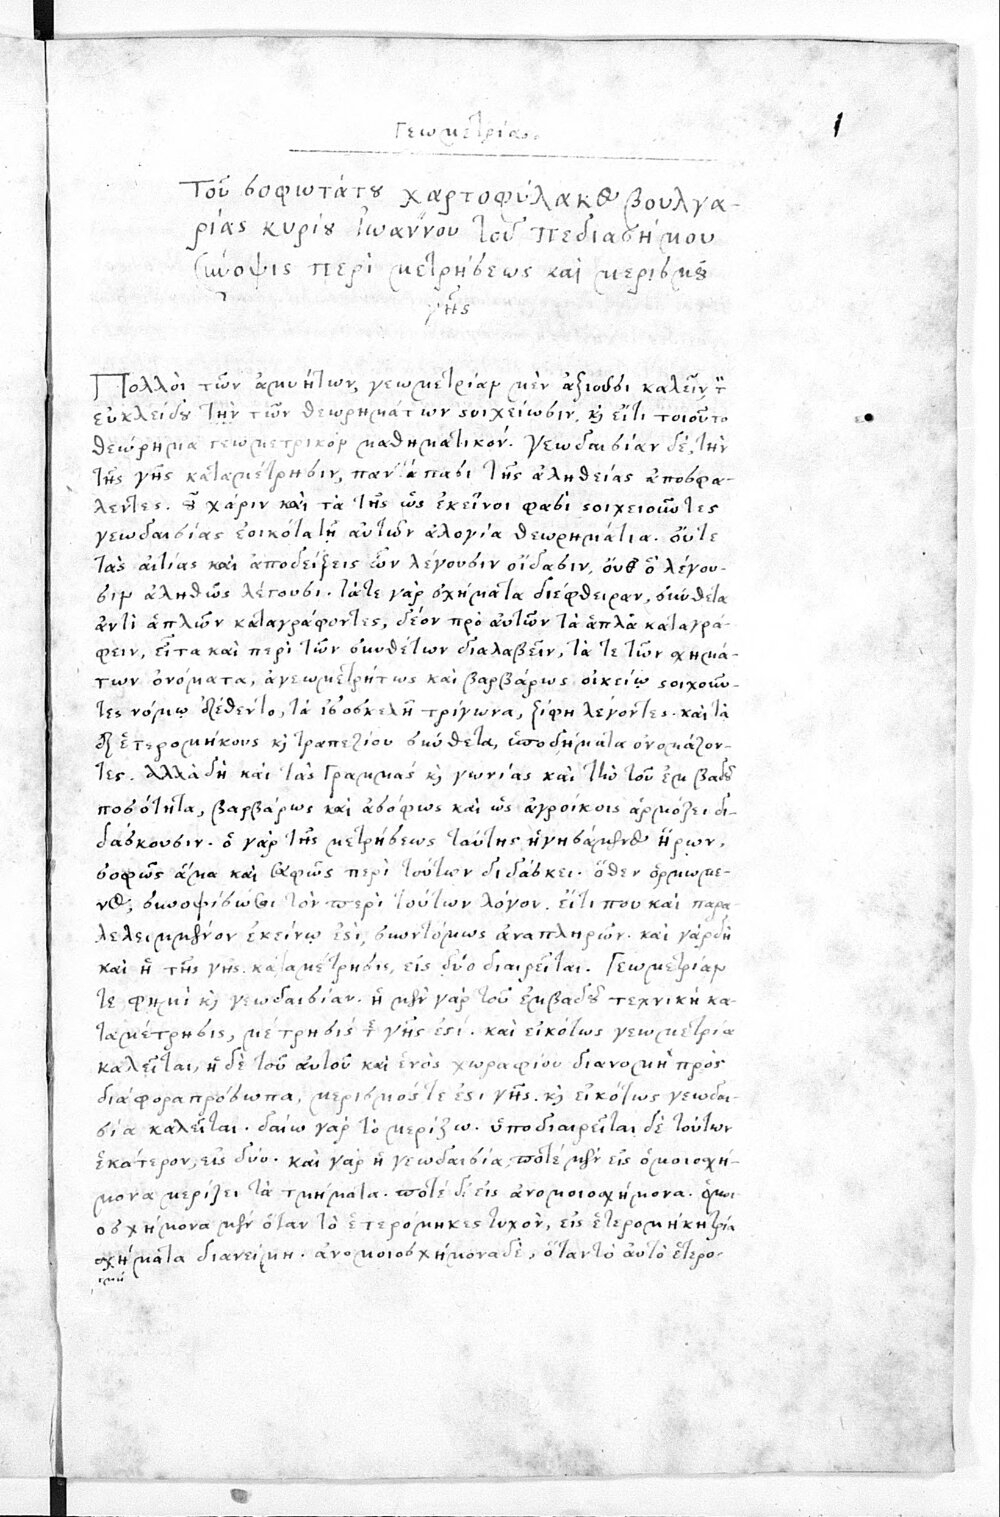 Γεωμετρία.
1
Τοῦ σοφωτάτου χαρτοφύλακος βουλγα-
ρίας κυρίου Ἰωάννου τοῦ πεδιασήμου
σύνοψις περὶ μετρήσεως καὶ μερισμοῦ
γῆς
Πολλοὶ τῶν ἀμυήτων, γεωμετρίαν μὲν ἀξιοῦσι καλεῖν, τὴν
εὐκλείδου τὴν τῶν θεωρημάτων στοιχείωσιν, καὶ εἴτι τοιοῦτο
θεώρημα γεωμετρικὸν μαθηματικόν. γεωδαισίαν δὲ, τὴν
τῆς γῆς καταμέτρησιν, παντάπασι τῆς ἀληθείας ἀποσφα-
λέντες. οὗ χάριν καὶ τὰ τῆς ὡς ἐκεῖνοι φασὶ στοιχειοῦντες
γεωδαισίας ἐοικότα τῇ αὐτῶν ἀλογία θεωρημάτια. οὔτε
τὰς αἰτίας καὶ ἀποδείξεις ὧν λέγουσιν οἴδασιν, οὔθ' ὃ λέγου-
σιν ἀληθῶς λέγουσι. τάτε γὰρ σχήματα διέφθειραν, σύνθετα
ἀντὶ ἁπλῶν καταγράφοντες, δέον πρὸ αὐτῶν τὰ ἁπλᾶ καταγρά-
φειν, εἶτα καὶ περὶ τῶν συνθέτων διαλαβεῖν, τά τε τῶν σχημά-
των ὀνόματα, ἀγεωμετρήτως καὶ βαρβάρως οἰκείῳ στοιχοῦν-
τες νόμῳ ἐξέθεντο, τὰ ἰσοσκελῆ τρίγωνα, ξίφη λέγοντες. καὶ τὰ
ἐξ ἑτερομήκους καὶ τραπεζίου σύνθετα, ὑποδήματα ὀνομάζον-
τες. Ἀλλὰ δὴ καὶ τὰς γραμμὰς καὶ γωνίας καὶ τὴν τοῦ ἐμβαδοῦ
ποσότητα, βαρβάρως καὶ ἀσόφως καὶ ὡς ἀγροίκοις ἁρμόζει δι-
δάσκουσιν. ὁ γὰρ τῆς μετρήσεως ταύτης ἡγησάμενος ἥρων,
σοφῶς ἅμα καὶ σαφῶς περὶ τούτων διδάσκει. ὅθεν ὁρμώμε-
νος, συνοψίσωσι τὸν περὶ τούτων λόγον. εἴτι που καὶ παρα-
λελειμμένον ἐκείνῳ ἐστὶ, συντόμως ἀναπληρῶν. καὶ γὰρ δὴ
καὶ ἡ τῆς γῆς καταμέτρησις, εἰς δύο διαιρεῖται. Γεωμετρίαν
τε φημὶ καὶ γεωδαισίαν. ἡ μὲν γὰρ τοῦ ἐμβαδοῦ τεχνικὴ κα-
ταμέτρησις, μέτρησίς τῆς γῆς ἐστί. καὶ εἰκότως γεωμετρία
καλεῖται, ἡ δὲ τοῦ αὐτοῦ καὶ ἑνὸς χωραφίου διανομὴ πρὸς
διάφορα πρόσωπα, μερισμός τε ἐστι γῆς. καὶ εἰκότως γεωδαι-
σία καλεῖται. δαίω γὰρ τὸ μερίζω. ὑποδιαιρεῖται δὲ τούτων
ἑκάτερον, εἰς δύο. καὶ γὰρ ἡ γεωδαισία, ποτὲ μὲν εἰς ὁμοιοσχή-
μονα μερίζει τὰ τμήματα. ποτὲ δ' εἰς ἀνομοιοσχήμονα. ὁμοι-
οσχήμονα μὲν ὅταν τὸ ἑτερόμηκες τυχὸν, εἰς ἑτερομήκη τρία
σχήματα διανείμῃ. ἀνομοιοσχήμονα δὲ, ὅταν τὸ αὐτὸ ἑτερό-